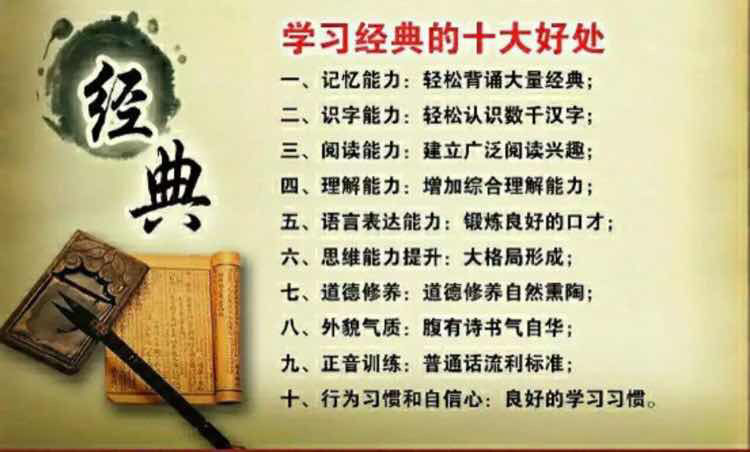 学习经典的十大好处
经典
一、记忆能力：轻松背诵大量经典；
二、识字能力：轻松认识数千汉字；
三、阅读能力：建立广泛阅读兴趣；
四、理解能力：增加综合理解能力；
五、语言表达能力：锻炼良好的口才；
六、思维能力提升：大格局形成；
七、道德修养：道德修养自然熏陶；
八、外貌气质：腹有诗书气自华；
九、正音训练：普通话流利标准；
十、行为习惯和自信心：良好的学习习惯。